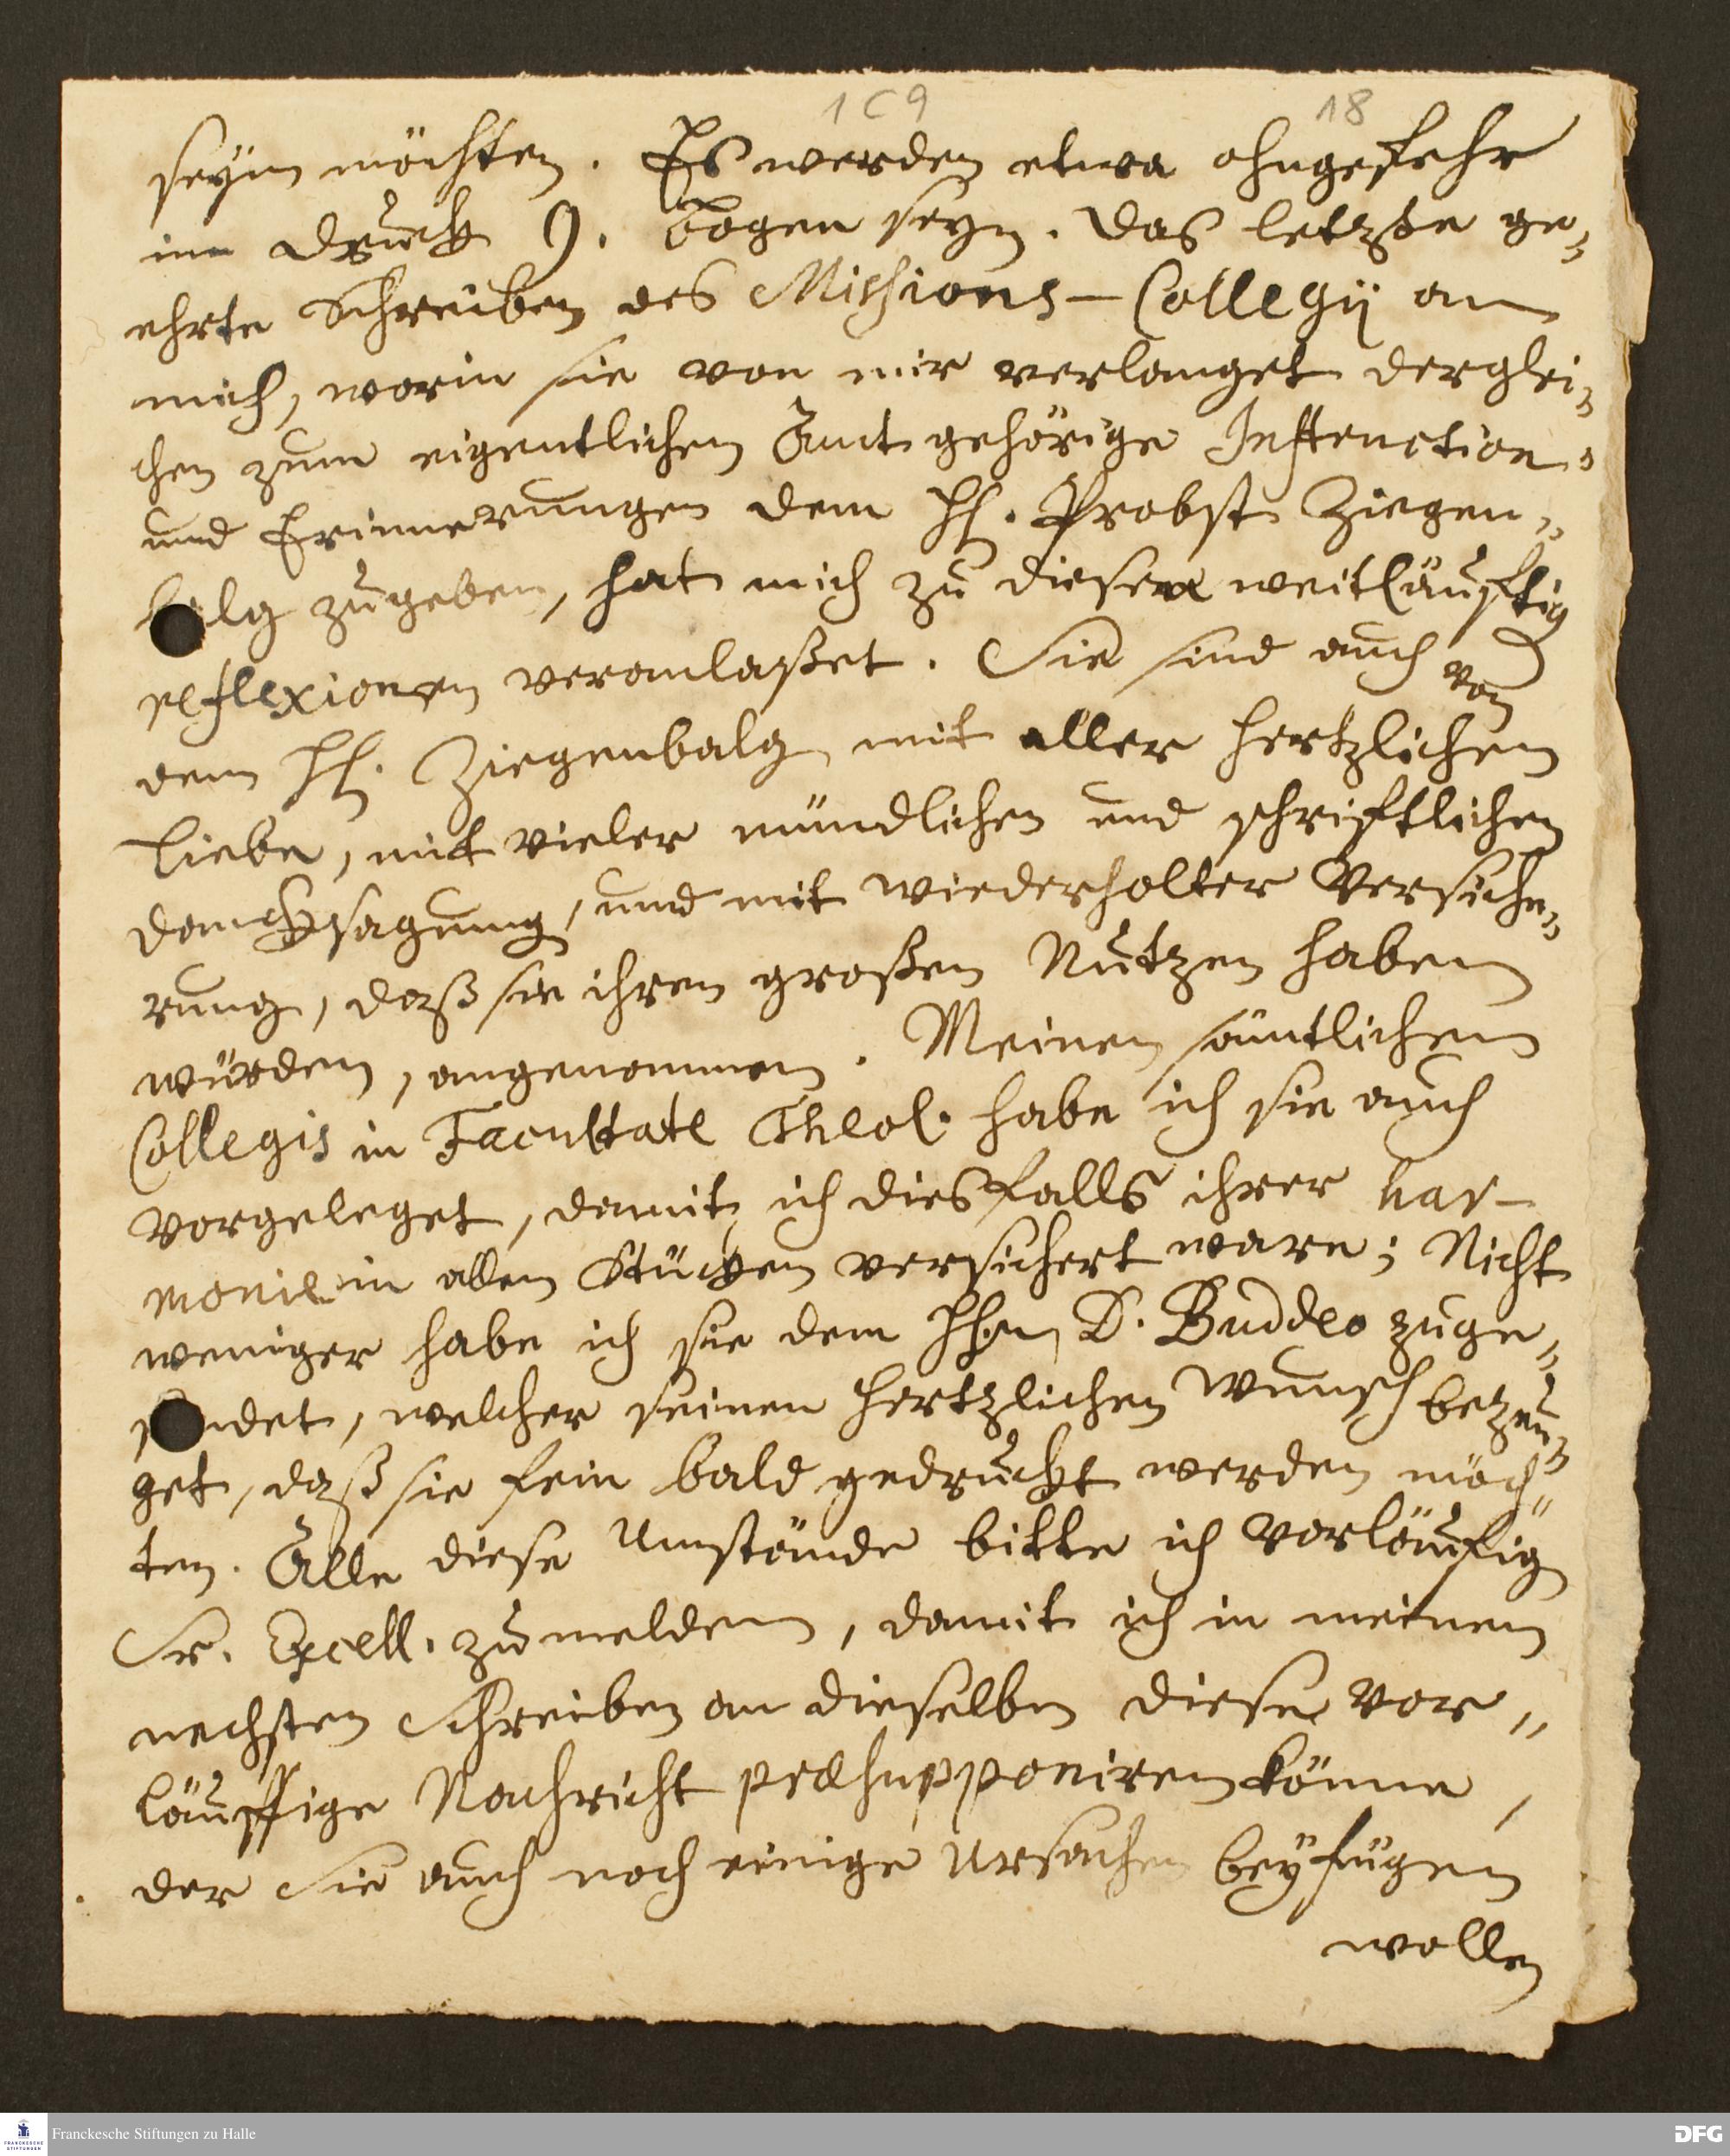 1C9 18
seyn möchten. Es werden etwa ohngefehr
im Druck 9. bogen seyn. Das letzte ge-
ehrte Schreiben des Missions-Collegij an
mich, worin sie von mir verlanget derglei-
chen zum eigentlichen Amt gehörige Instruction-
und Erinnerungen dem H. Probst Ziegen-
balg zugeben, hat mich zu diesen weitläuftig
reflexionen veranlaßet. Sie sind auch von
dem H. Ziegenbalg mit aller hertzlichen
Liebe, mit vieler mündlichen und schriftlichen
Dancksagung, und mit wiederholter Versiche-
rung, daß sie ihren großen Nutzen haben
würden, angenommen. Meinen sämtlichen
Collegis in Facultate Theol. habe ich sie auch
vorgeleget, damit ich diesfalls ihrer har-
monie in allen Stücken versichert ware; Nicht
weniger habe ich sie dem Hhn D. Buddeo zuge-
sendet, welcher seinen hertzlichen Wunsch bezeu-
get, daß sie fein bald gedruckt werden möch-
ten. Alle diese Umstände bitte ich vorläufig
Sr. Excell. zu melden, damit ich in meinem
nechsten Schreiben an dieselben diese vor-
läuffige Nachricht præsupponiren könne,
der Sie auch noch einige Ursachen beyfügen
wollen
FRANCKESCHE STIFTUNGEN
Franckesche Stiftungen zu Halle
DFG